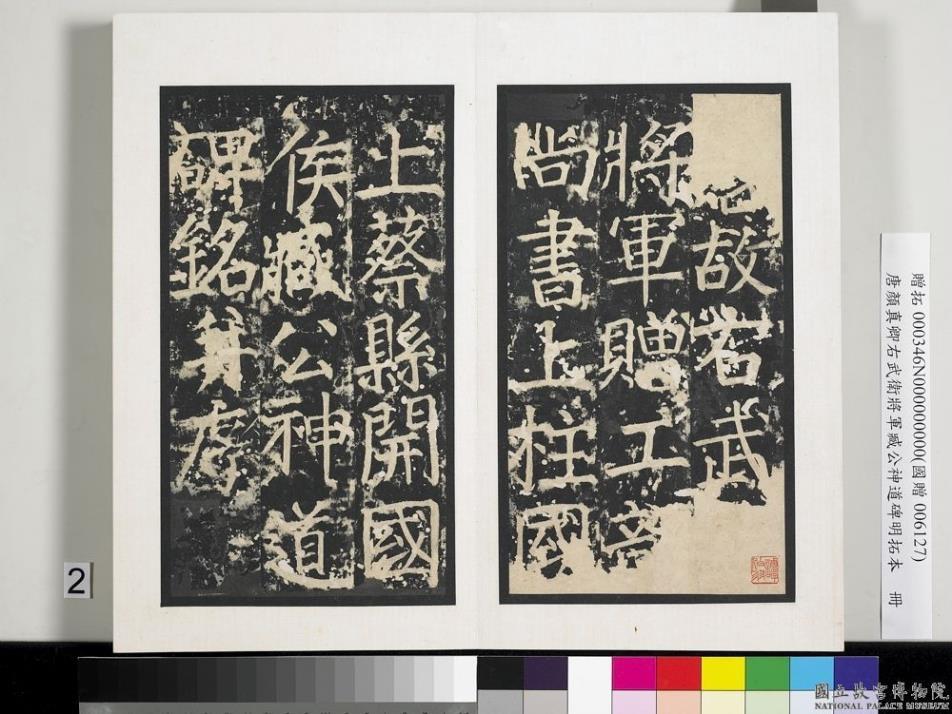 故右武
將軍贈工部
尚書上柱國
上蔡縣開國
侯臧公神道
碑銘并序
2
贈拓 000346N000000000(國贈 006127)
唐顏真卿右武衛將軍臧公神道碑明拓本 冊
國立故宮博物院
NATIONAL PALACE MUSEUM